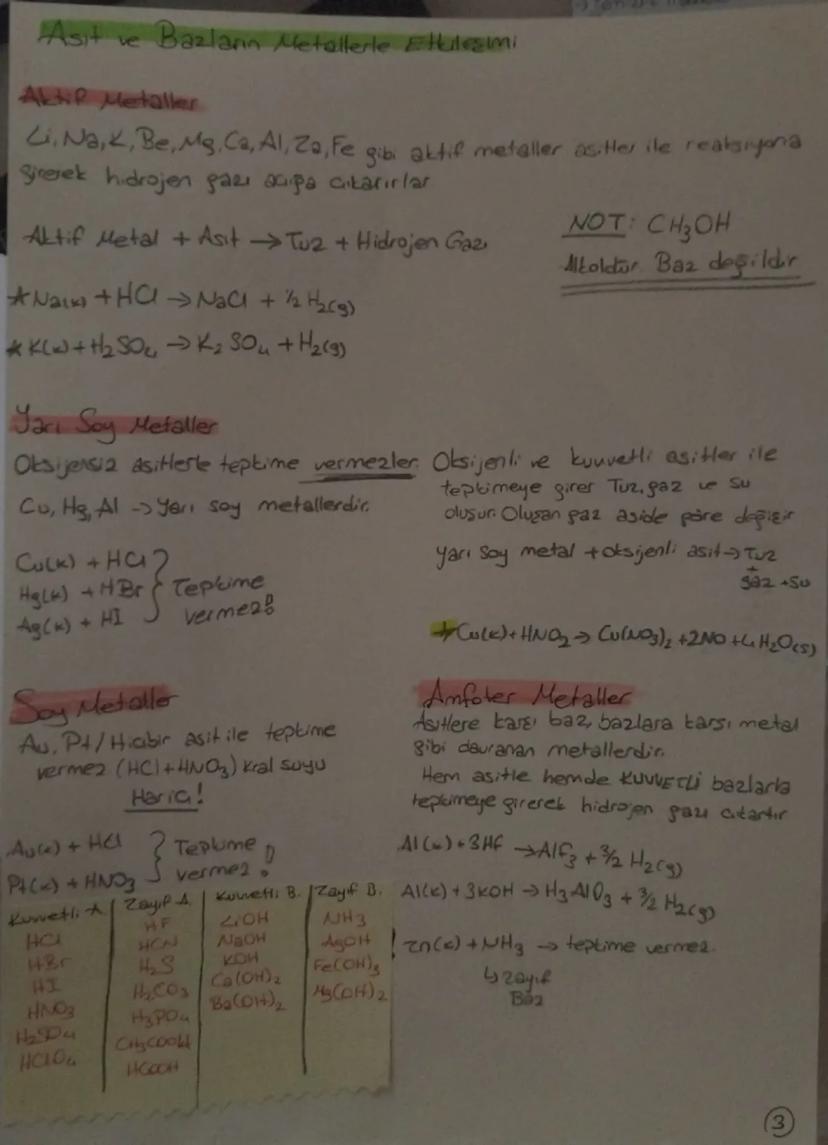 Asit ve Bazların Metallerle Etkileşimi
Aktif Metaller
Li, Na, K, Be, Mg, Ca, Al, Zn, Fe gibi aktif metaller asitler ile reaksiyona
girerek hidrojen gazı açığa çıkarırlar
Aktif Metal + Asit → Tuz + Hidrojen Gazı
NOT: CH3OH
Alkoldür. Baz değildir
*Na(k) + HCl → NaCl + 1/2 H2(g)
*K(k) + H2SO4 → K2SO4 + H2(g)
Yarı Soy Metaller
Oksijensiz asitlerle tepkime vermezler.
Cu, Hg, Al → Yarı soy metallerdir.
Cu(k) + HCl
Hg(k) + HBr
Ag(k) + HI
} Tepkime
vermez!
Oksijenli ve kuvvetli asitler ile
tepkimeye girer Tuz, gaz ve su
oluşur. Oluşan gaz aside göre değişir
Yarı Soy metal + oksijenli asit → Tuz
+
gaz + su
*Cu(k) + HNO2 → Cu(NO3)2 + 2NO + 4H2O(s)
Soy Metaller
Au, Pt / Hiçbir asit ile tepkime
vermez (HCl + HNO3) Kral suyu
Hariç!
Au(k) + HCl
Pt(k) + HNO3
} Tepkime
vermez!
Amfoter Metaller
Asitlere karşı baz, bazlara karşı metal
gibi davranan metallerdir.
Hem asitle hemde KUVVETLİ bazlarla
tepkimeye girerek hidrojen gazı çıkartır
Al(k) + 3HF → AlF3 + 3/2 H2(g)
Al(k) + 3KOH → H3AlO3 + 3/2 H2(g)
! Zn(k) + NH3 → tepkime vermez.
↳ Zayıf
Baz
Kuvvetli A. Zayıf A. Kuvvetli B. Zayıf B.
HCl HF LiOH NH3
HBr HCN NaOH AgOH
HI H2S KOH Fe(OH)3
HNO3 H2CO3 Ca(OH)2 Mg(OH)2
H2SO4 H3PO4 Ba(OH)2
HClO4 CH3COOH
HCOOH
3